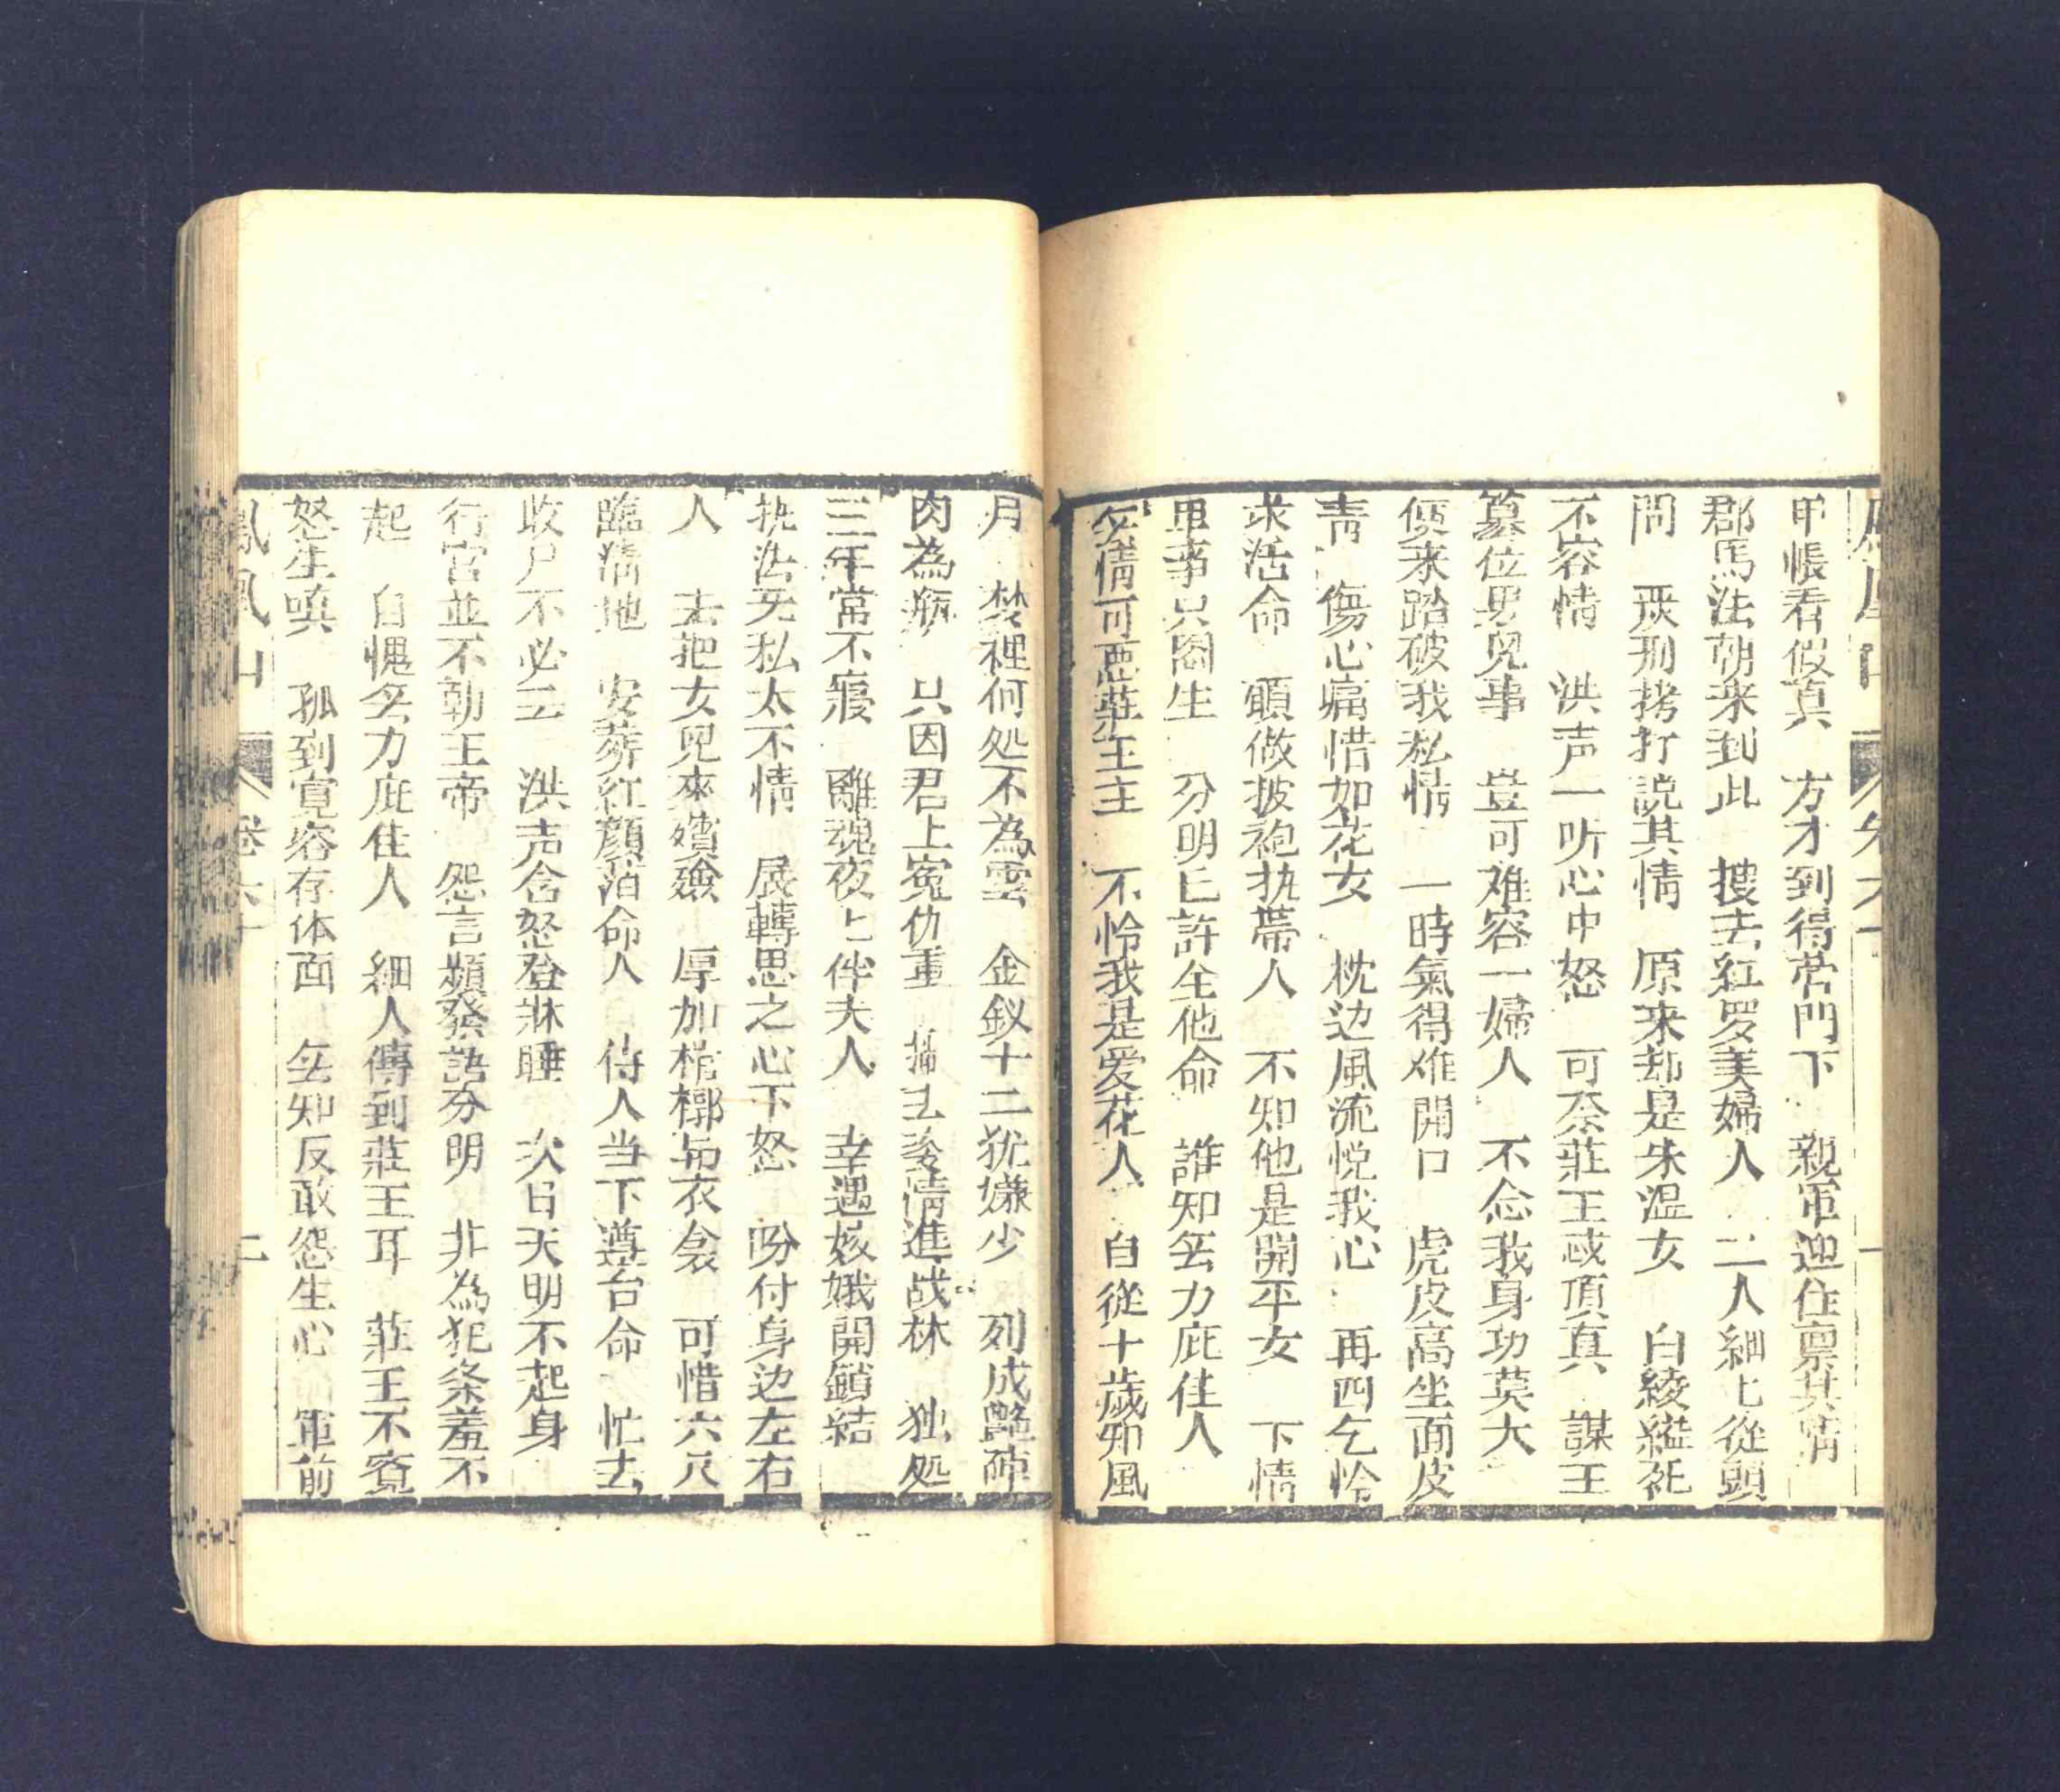 甲帳看假真　方才到得营門下　親軍迎住禀其情
郡馬法朝来到此　搜去红罗美婦人　二人細匕從頭
問　严刑拷打説其情　原来却是朱温女　白綾縊死
不容情　洪声一听心中怒　可奈莊王忒頂真　謀王
篡位男兒事　豈可难容一婦人　不念我身功莫大
便来踏破我私情　一時氣得难開口　虎皮高坐面皮
青　傷心痛惜如花女　枕边風流悦我心　再四乞怜
求活命　願做披袍执帶人　不知他是開平女　下情
里事只图生　分明已許全他命　誰知無力庇佳人
無情可恶莊王主　不怜我是爱花人　自從十歲知風
月　梦裡何処不為雲　金釵十二犹嫌少　列成艷陣
肉為瓶　只因君上寃仇重　撇去姿情進战林　独処
三年常不寢　離魂夜匕伴夫人　幸遇嫦娥開鎖結
执法无私太不情　展轉思之心下怒　吩付身边左右
人　去把女兒來殯殮　厚加棺槨与衣衾　可惜六尺
臨淄地　安葬红顏泊命人　侍人当下遵台命　忙去
收尸不必云　洪声含怒登牀睡　次日天明不起身
行宮並不朝王帝　怨言頻發語分明　非為犯条羞不
起　自愧無力庇佳人　細人傳到莊王耳　莊王不覔
怒生嗔　孤到寛容存体面　無知反敢怨生心　軍前
鳳凰山　卷六十　二